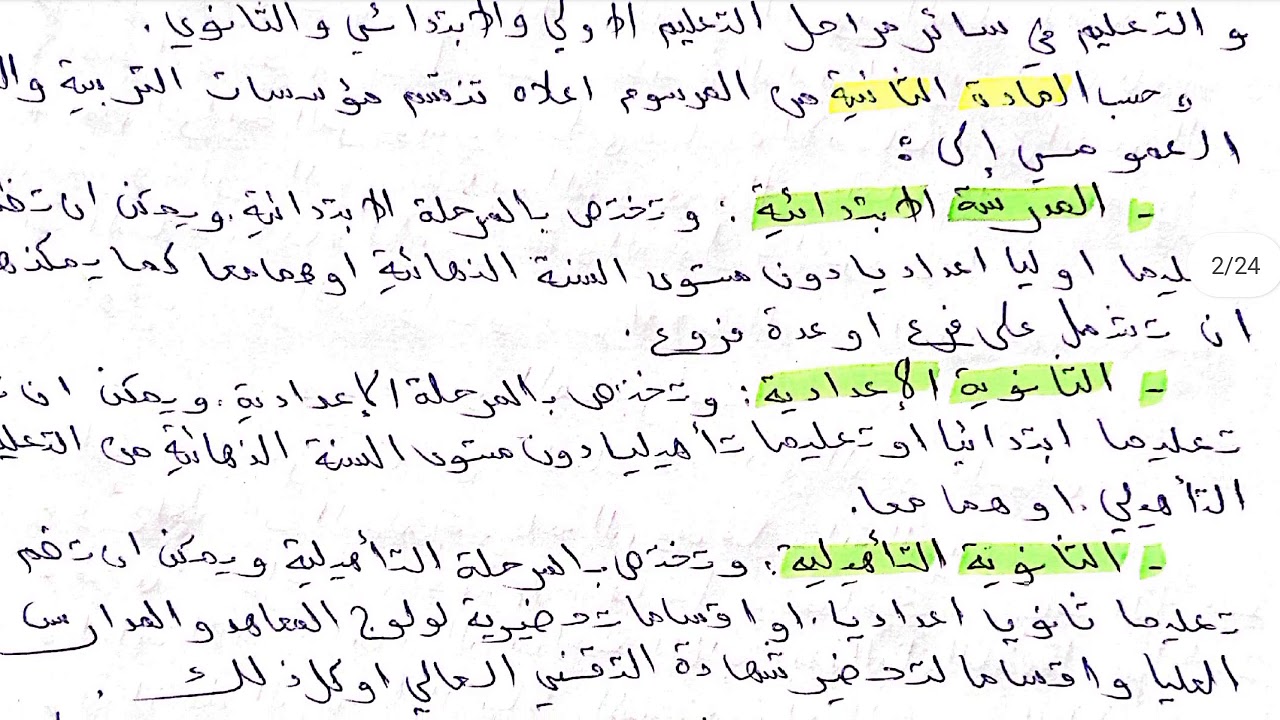 و التعليم في سائر مراحل التعليم الاولي والابتدائي و الثانوي .
و حسب المادة الثانية من المرسوم اعلاه تنقسم مؤسسات التربية وال
العمومي إلى :
- المدرسة الابتدائية : و تختص بالمرحلة الابتدائية . ويمكن ان تض
ليما اوليا اعداديا دون مستوى السنة النهائية او هما معا كما يمكنه
2/24
ان تشمل على فرع او عدة فروع .
- الثانوية الإعدادية : و تختص بالمرحلة الإعدادية . و يمكن ان ت
تعليما ابتدائيا او تعليما تأهيليا دون مستوى السنة النهائية من التعلي
التأهيلي . او هما معا .
- الثانوية التأهيلية : و تختص بالمرحلة التأهيلية و يمكن ان تضم
تعليما ثانويا اعداديا . او اقساما تحضيرية لولوج المعاهد و المدارس
العليا و اقساما لتحضير شهادة التقني العالي او كل ذلك .